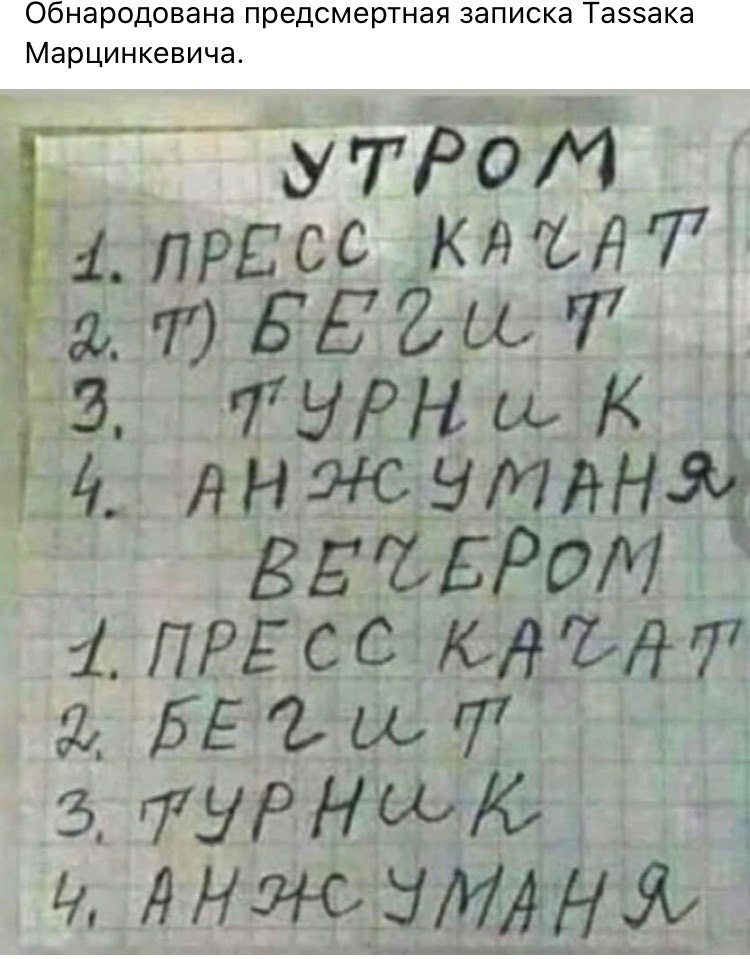 Обнародована предсмертная записка Tassaка
Марцинкевича.
УТРОМ
1. ПРЕСС КАЧАТ
2. Т) БЕГИТ
3. ТУРНИК
4. АНЖУМАНЯ
ВЕЧЕРОМ
1. ПРЕСС КАЧАТ
2. БЕГИТ
3. ТУРНИК
4. АНЖУМАНЯ